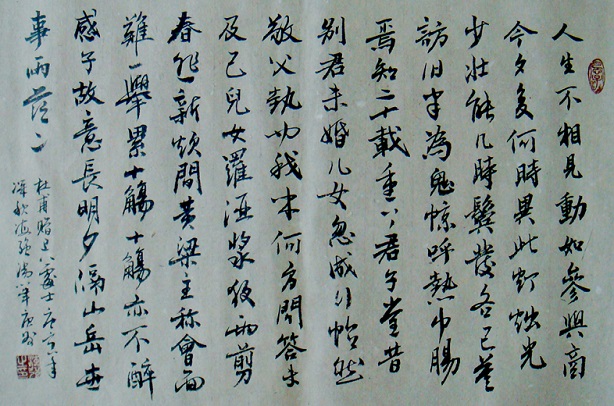 人生不相見動如參與商
今夕复何時異此灯燭光
少壯能几時鬢髮各已蒼
訪旧半為鬼惊呼熱中腸
焉知二十載重上君子堂昔
別君未婚儿女忽成行怡然
敬父執問我来何方問答未
及已兒女羅酒漿夜雨剪
春韭新炊間黄粱主称會面
難一舉累十觴十觴亦不醉
感子故意長明夕隔山岳世
事兩茫々
杜甫贈卫八處士